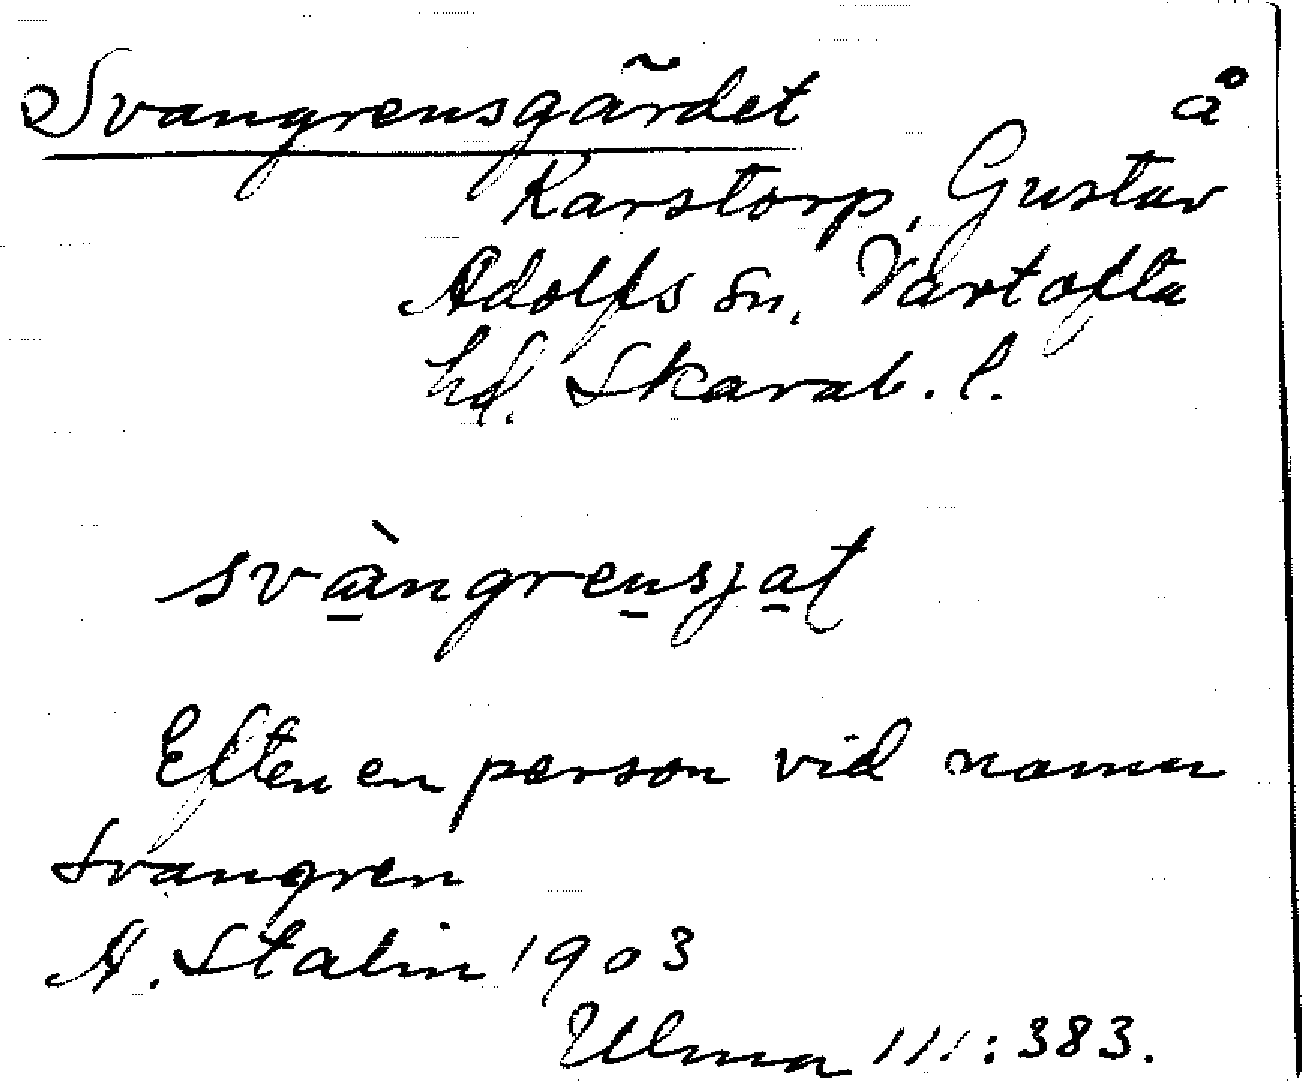 Svangrensgärdet å
Karstorp, Gustav
Adolfs sn. Vartofta
hd. Skarab. l.
svàngrensjat
Efter en person vid namn
Svangren
A. Stalin 1903
Ulma 111:383.